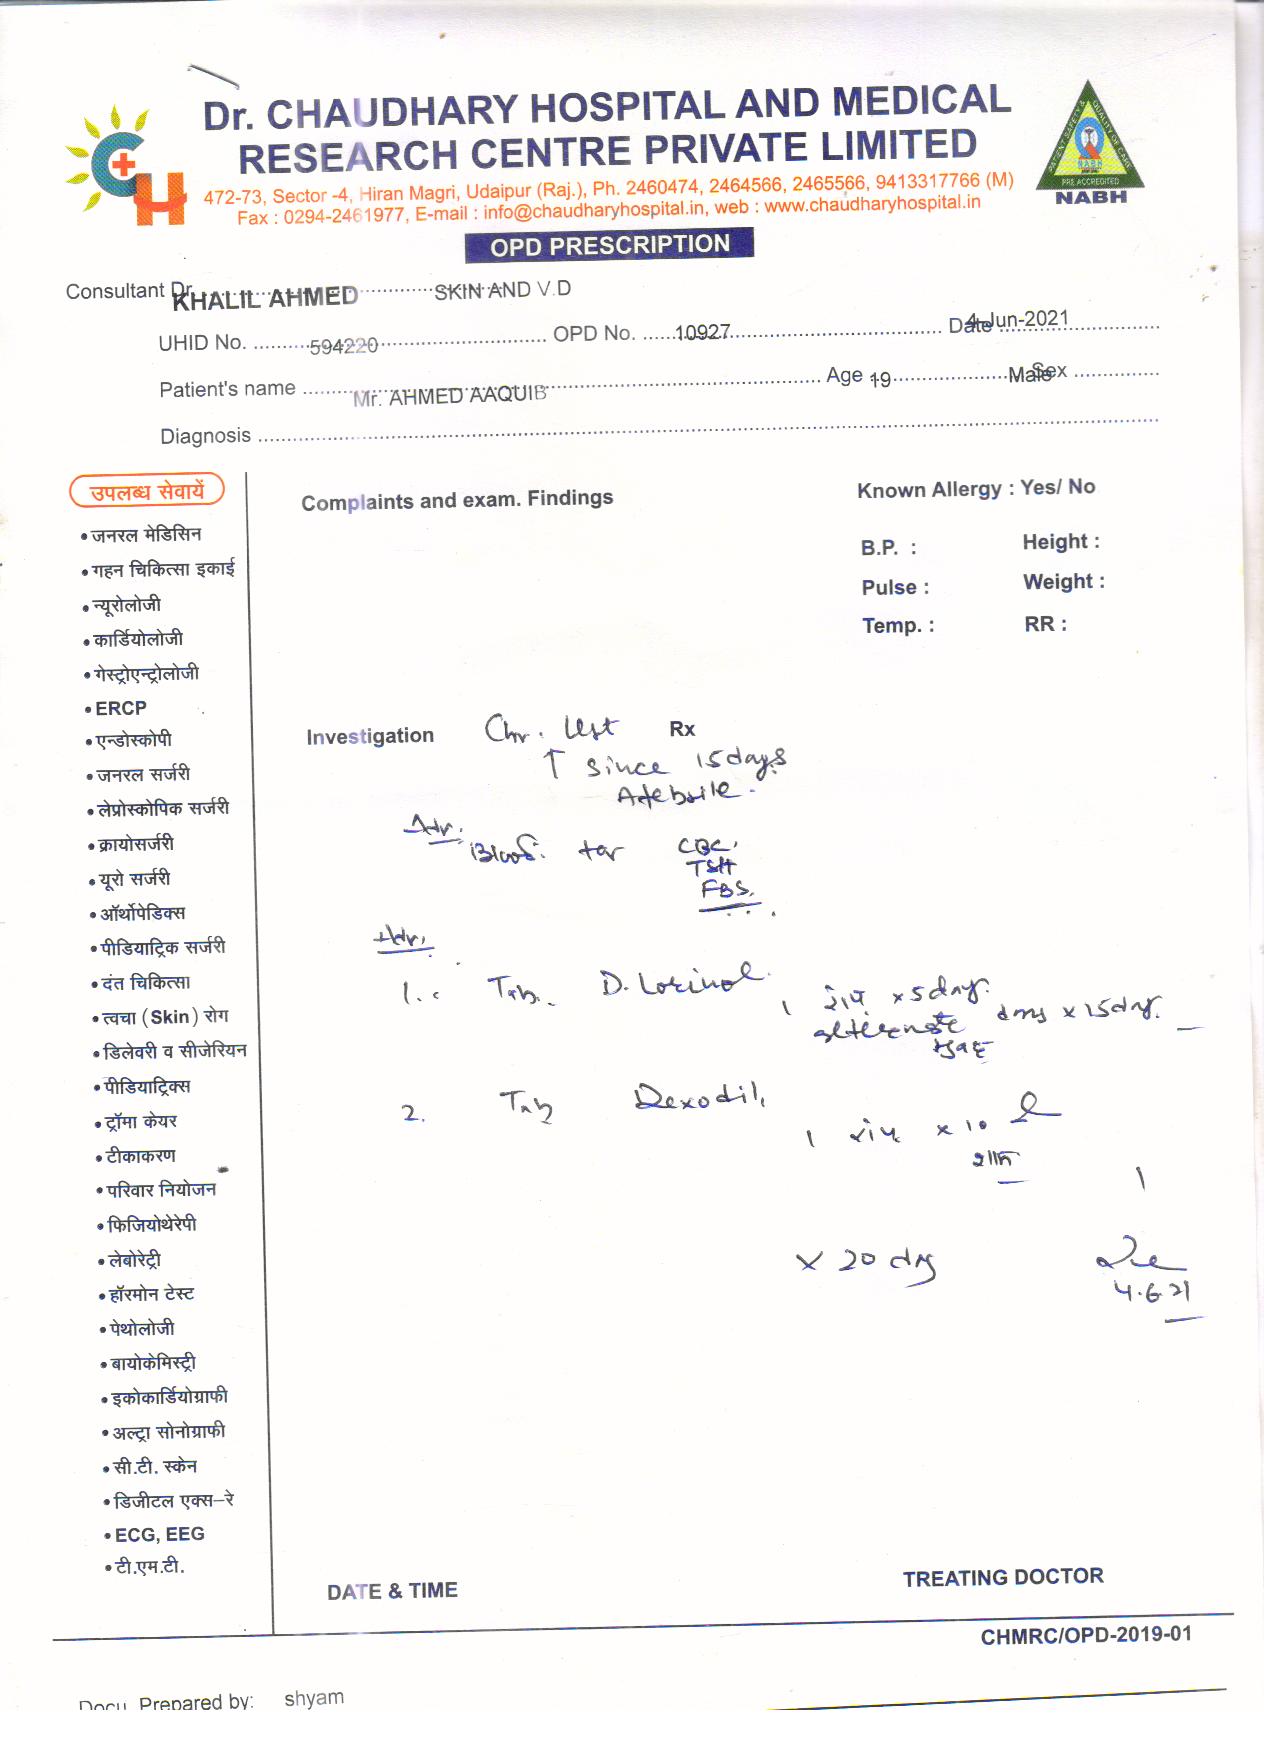 Dr. CHAUDHARY HOSPITAL AND MEDICAL
RESEARCH CENTRE PRIVATE LIMITED
472-73, Sector -4, Hiran Magri, Udaipur (Raj.), Ph. 2460474, 2464566, 2465566, 9413317766 (M)
Fax : 0294-2461977, E-mail : info@chaudharyhospital.in, web : www.chaudharyhospital.in
PATIENT SAFETY & QUALITY OF CARE
NABH
PRE ACCREDITED
NABH
OPD PRESCRIPTION
Consultant Dr. KHALIL AHMED SKIN AND V.D
UHID No. 594220 OPD No. 10927 Date 4-Jun-2021
Patient's name Mr. AHMED AAQUIB Age 19 Sex Male
Diagnosis
उपलब्ध सेवायें
• जनरल मेडिसिन
• गहन चिकित्सा इकाई
• न्यूरोलोजी
• कार्डियोलोजी
• गेस्ट्रोएन्ट्रोलोजी
• ERCP
• एन्डोस्कोपी
• जनरल सर्जरी
• लेप्रोस्कोपिक सर्जरी
• क्रायोसर्जरी
• यूरो सर्जरी
• ऑर्थोपेडिक्स
• पीडियाट्रिक सर्जरी
• दंत चिकित्सा
• त्वचा (Skin) रोग
• डिलेवरी व सीजेरियन
• पीडियाट्रिक्स
• ट्रॉमा केयर
• टीकाकरण
• परिवार नियोजन
• फिजियोथेरेपी
• लेबोरेट्री
• हॉरमोन टेस्ट
• पेथोलोजी
• बायोकेमिस्ट्री
• इकोकार्डियोग्राफी
• अल्ट्रा सोनोग्राफी
• सी.टी. स्केन
• डिजीटल एक्स-रे
• ECG, EEG
• टी.एम.टी.
Complaints and exam. Findings
Known Allergy : Yes/ No
B.P. : Height :
Pulse : Weight :
Temp. : RR :
Investigation Chr. Rx
↑ since 15 days
Afebrile.
Adv.
Blood for CBC,
TSH
FBS.
Adv.
1. Tab. D. Lorinol
1 रोज x 5 day.
alternate day x 15 day.
2. Tab Dexodil
1 रोज x 10
x 20 day
4.6.21
DATE & TIME
TREATING DOCTOR
CHMRC/OPD-2019-01
Docu. Prepared by: shyam